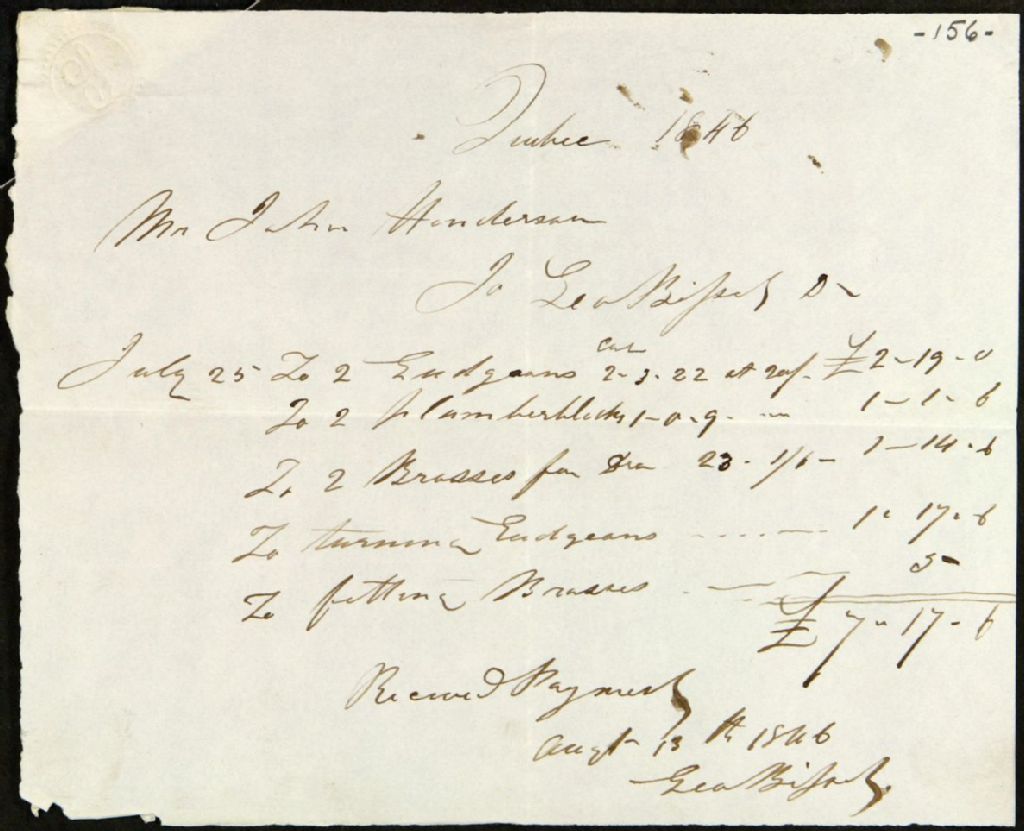 -156-
Quebec 1846
Mr John Henderson
To Geo Bissett Dr
cwt
July 25 To 2 Gudgeons 2-3-22 at 20/- £2-19-0
To 2 plumberblocks 1-0-9 - " 1-1-6
To 2 Brasses for Do 23 - 1/6 - 1-14-6
To turning Gudgeons ...... 1-17-6
To fitting Brasses 5-
£7-17-6
Received Payment
Augt 13th 1846
Geo Bissett